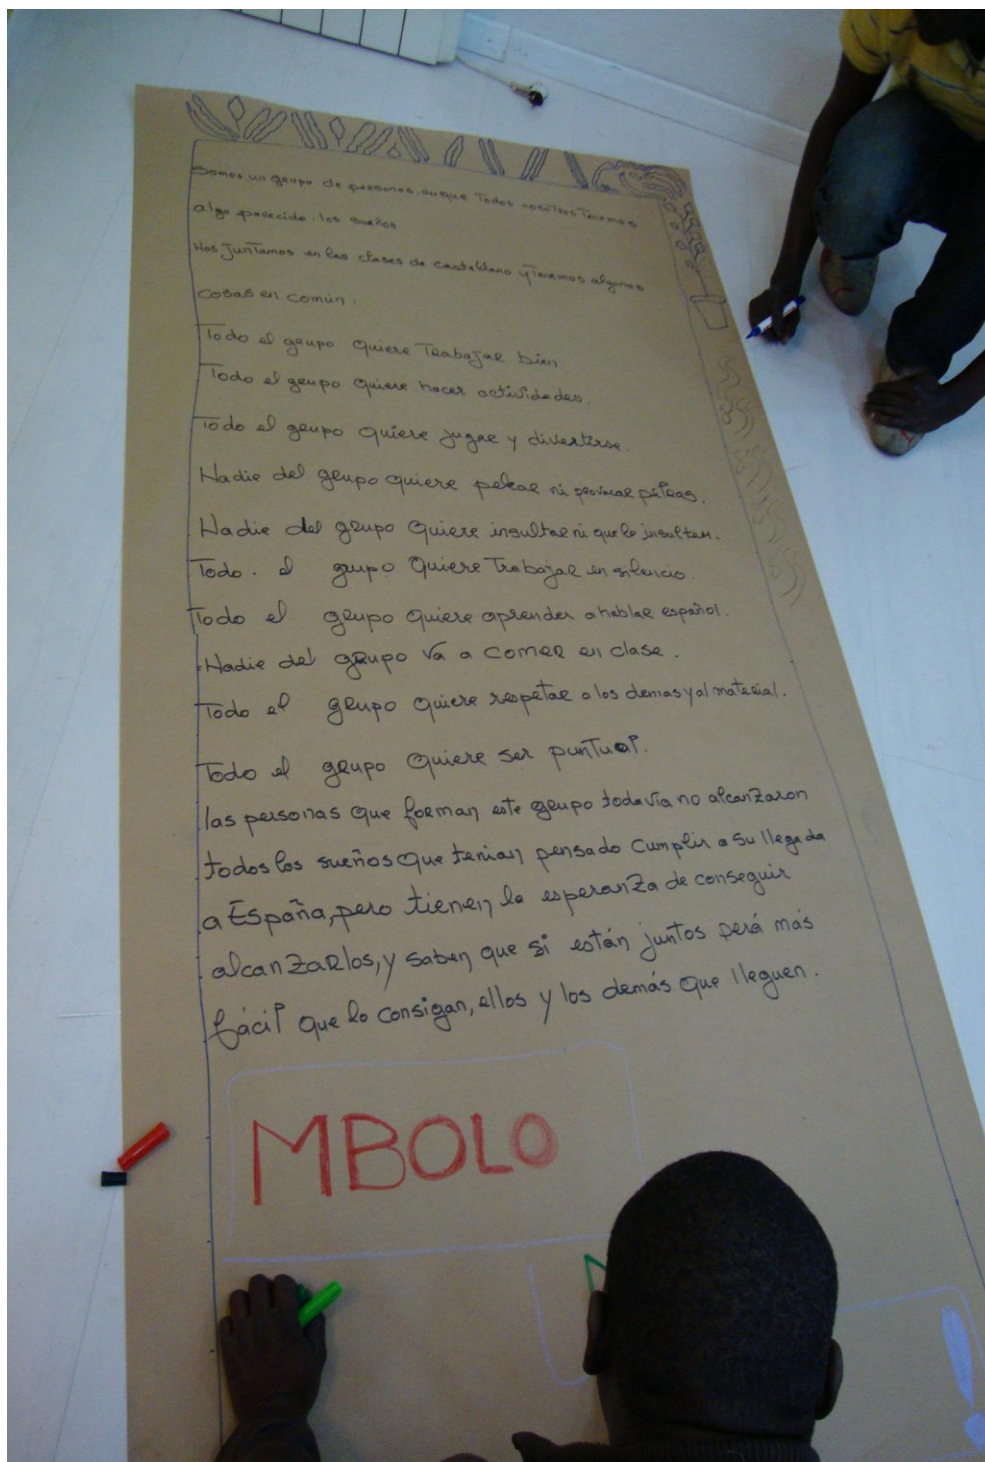 Somos un grupo de personas, aunque Todos nosotros Tenemos
algo parecido: los sueños
Nos junTamos en las clases de castellano y Tenemos algunas
cosas en común:
Todo el grupo Quiere Trabajar bien
Todo el grupo Quiere hacer actividades.
Todo el grupo Quiere jugar y divertirse.
Nadie del grupo quiere pelear ni provocar peleas.
Nadie del grupo Quiere insultar ni que le insulten.
Todo. el grupo Quiere Trabajar en silencio.
Todo el grupo Quiere aprender a hablar español.
Nadie del grupo va a comer en clase.
Todo el grupo Quiere respetar a los demas y al material.
Todo el grupo Quiere ser punTual.
las personas que forman este grupo todavia no alcanzaron
todos los sueños que tenian pensado cumplir a su llegada
a España, pero tienen la esperanza de conseguir
alcanzarlos, y saben que si están juntos perá más
fácil que lo consigan, ellos y los demás que lleguen.
MBOLO